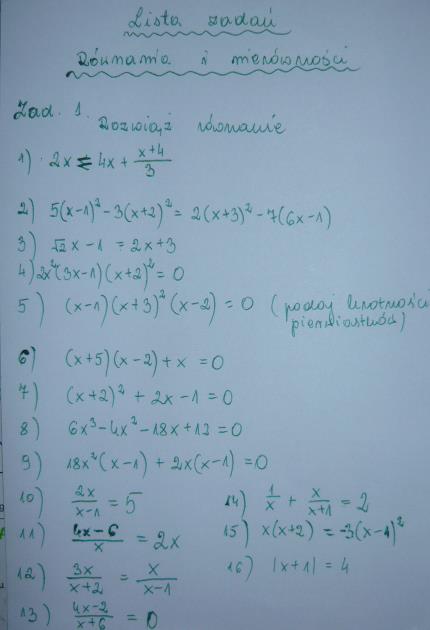 Lista zadań
Równania i nierówności
Zad. 1.
Rozwiąż równanie
1) 2x = 4x + \frac{x+4}{3}
2) 5(x-1)² - 3(x+2)² = 2(x+3)² - 7(6x-1)
3) √2 x - 1 = 2x+3
4) 2x²(3x-1)(x+2)² = 0
5) (x-1)(x+3)²(x-2) = 0 (podaj krotności
pierwiastków)
6) (x+5)(x-2)+x = 0
7) (x+2)² + 2x - 1 = 0
8) 6x³ - 4x² - 18x + 12 = 0
9) 18x²(x-1) + 2x(x-1) = 0
10) \frac{2x}{x-1} = 5
11) \frac{4x-6}{x} = 2x
12) \frac{3x}{x+2} = \frac{x}{x-1}
13) \frac{4x-2}{x+6} = 0
14) \frac{1}{x} + \frac{x}{x+1} = 2
15) x(x+2) = -3(x-1)²
16) |x+1| = 4